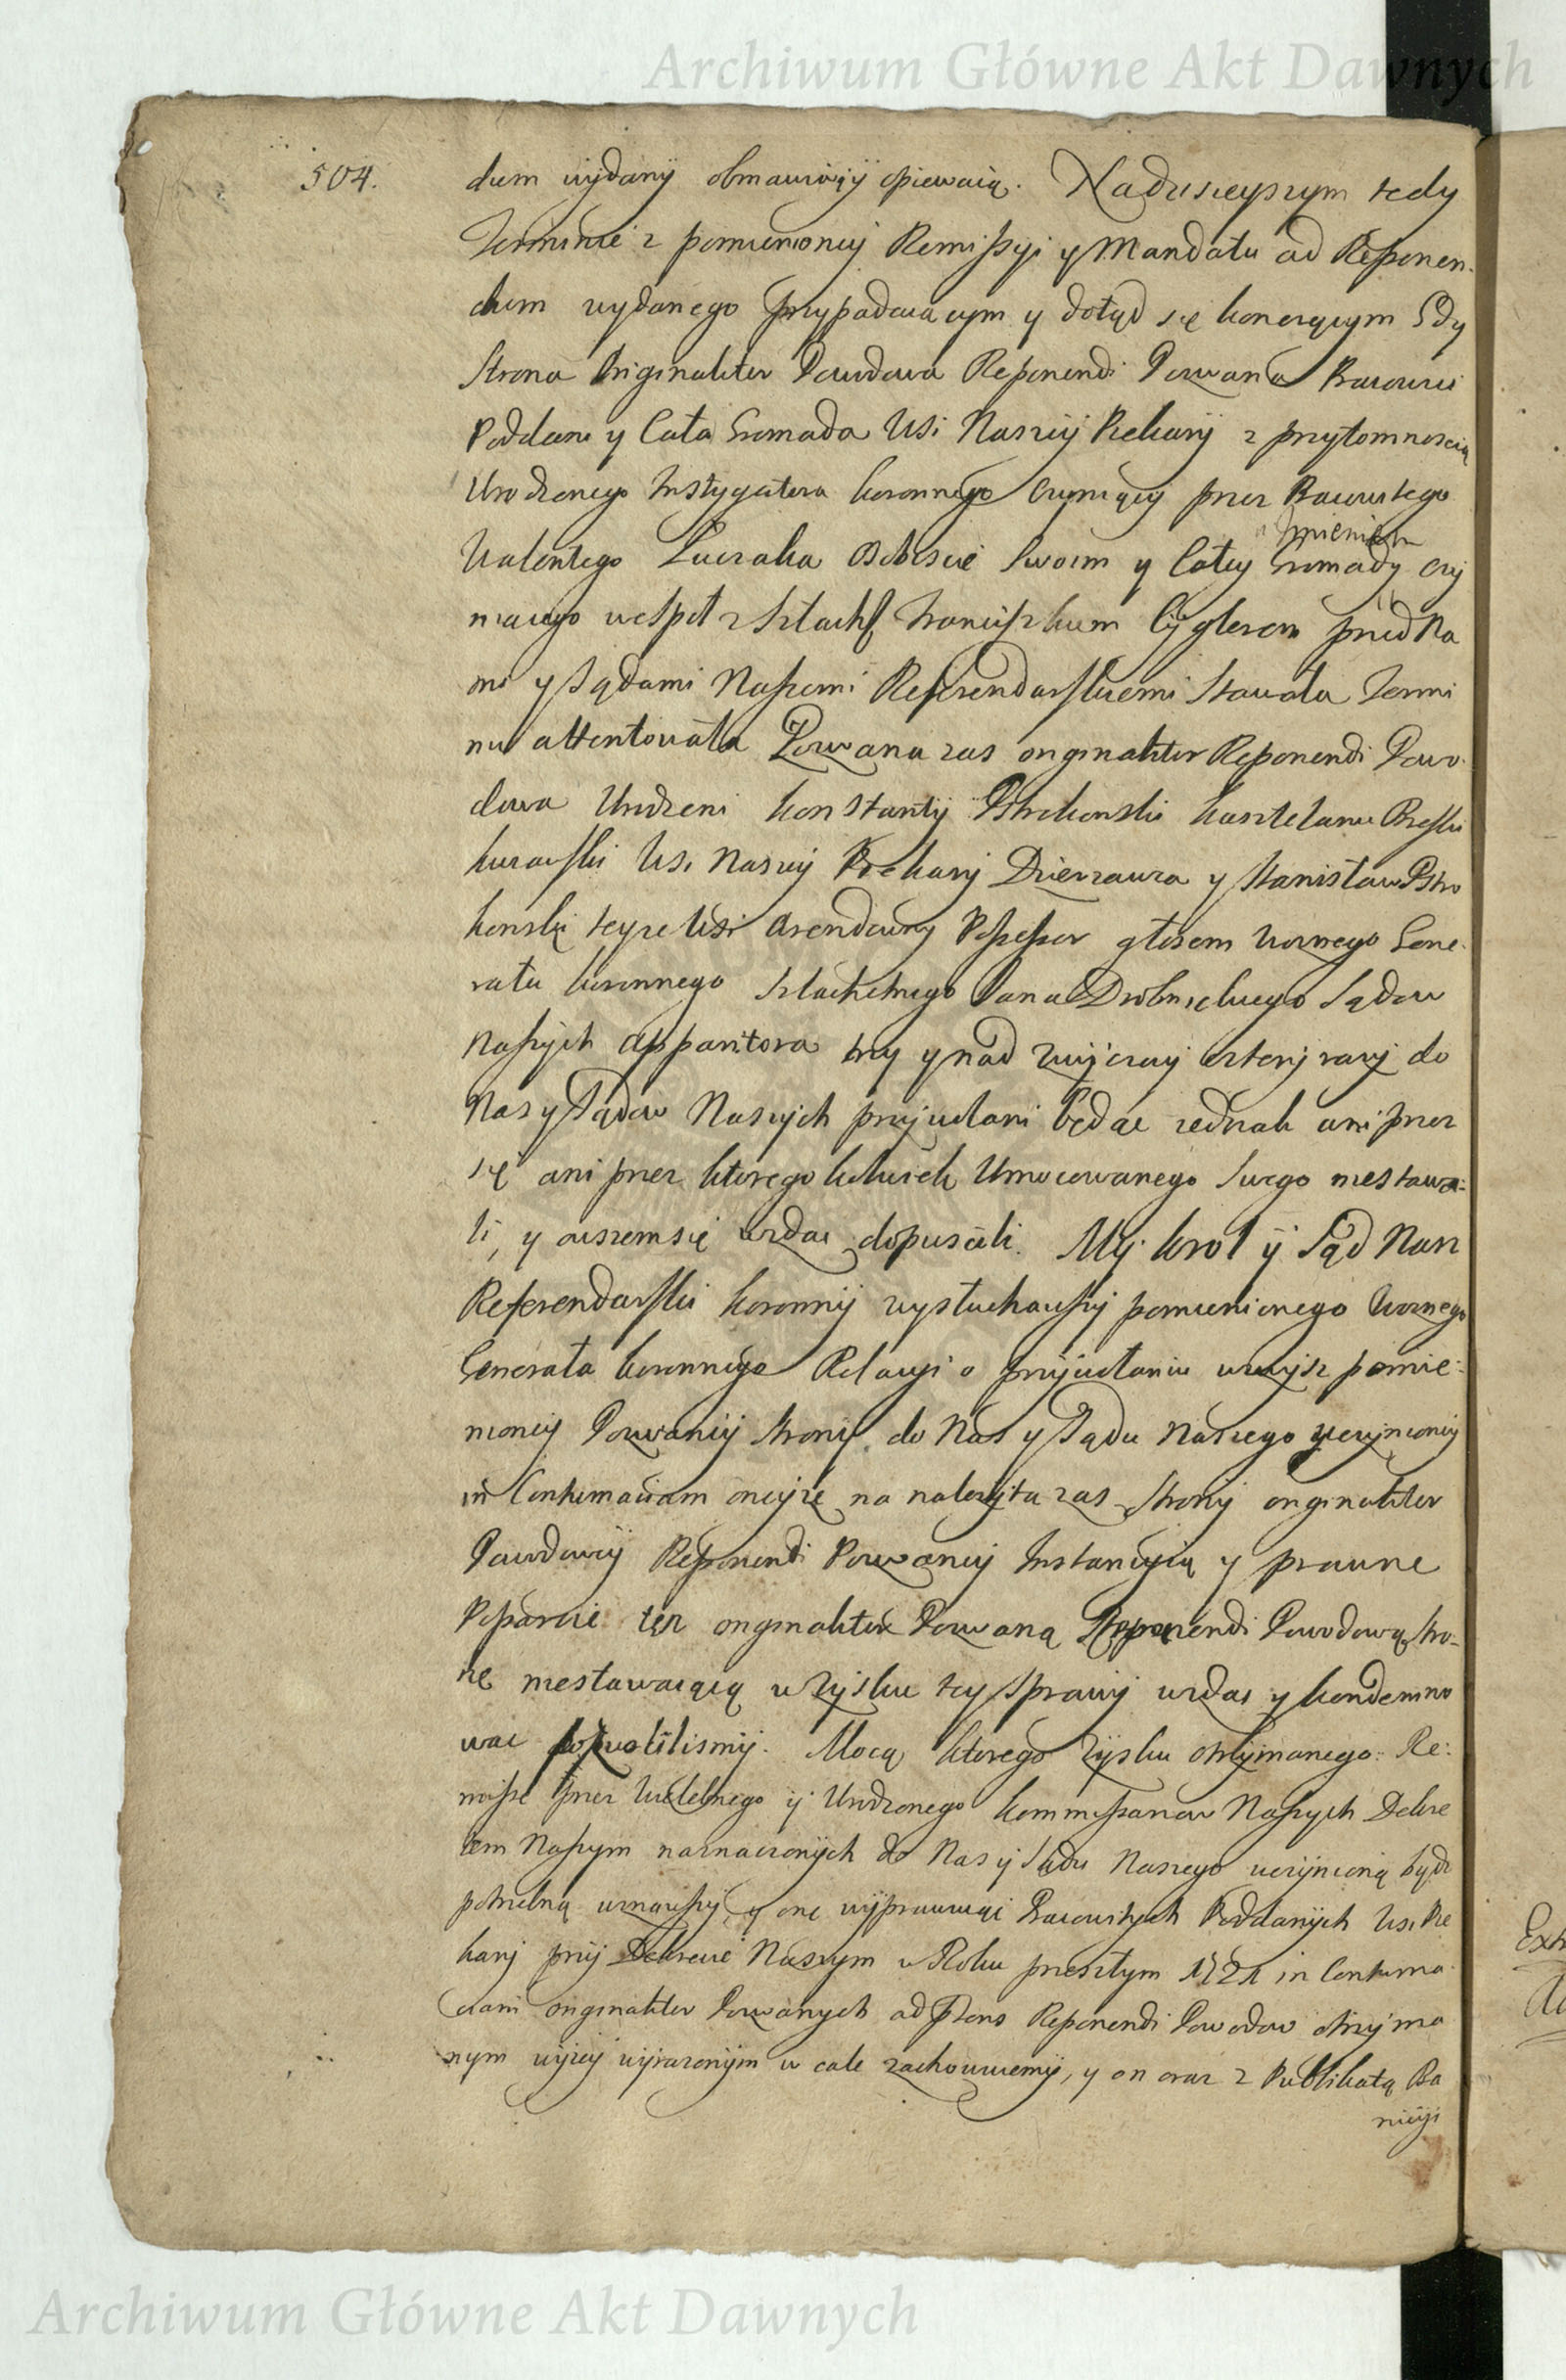 Archiwum Główne Akt Dawnych
504.
dum wydany obmawiaiący opiewaią. Na dzisieyszym tedy
Terminie z pomienioney Remissyi y Mandatu ad Reponen-
dum wydanego przypadaiącym y dotąd się konczącym Gdy
Strona Originaliter Powodowa Reponendi Pozwana Pracowici
Poddani y Cała Gromada Wsi Naszey Piekary z przytomnoscią
Urodzonego Instygatora koronnego czyniący przez Pracowitego
Walentego Łuczaka Osobiscie Swoim y Całey Gromady czy
Imieniem
niącego wespoł z Szlach: Franciszkiem Cyglerem przed Na
mi y Sądami Naszemi Referendarskiemi Stawała Termi
nu attentowała Pozwana zas originaliter Reponendi Powo-
dowa Urodzeni Konstanty Pstrokonski Kasztelanic Brzeski
kuiawski Wsi Naszey Piekary Dzierzawca y Stanisław Pstro
konski teyze Wsi Arendowny Possessor głosem Woznego Gene-
rała koronnego Szlachetnego Jana Drobnickiego Sądow
Naszych Apparitora trzy y nad zwyczay cztery razy do
Nas y Sądow Naszych przywołani będąc iednak ani przez
się ani przez ktoregokolwiek Umocowanego Swego niestawa-
li, y owszem się wzdac dopuscili. My Krol y Sąd Nasz
Referendarski koronny wysłuchawszy pomienionego Woznego
Generała koronnego Relacyi o przywołaniu wwysz pomie-
nioney Pozwaney Strony do Nas y Sądu Naszego uczynioney
in Contumaciam oneyze na nalezytą zas Strony originaliter
Powodowey Reponendi Pozwaney Instancyią y prawne
Poparcie tęz originaliter Pozwaną Reponendi Powodową Stro-
nę niestawaiącą w Zysku tey Sprawy wzdac y kondemno
wac pozwolilismy. Mocą ktorego Zysku otrzymanego Re-
misse przez Wielebnego y Urodzonego kommissarzow Naszych Dekre
tem Naszym naznaczonych do Nas y Sądu Naszego uczynioną bydz
potrzebną uznawszy, y onę wyprawuiąc Pracowitych Poddanych Wsi Pie
kary przy Dekrecie Naszym w Roku przeszłym 1721 in Contuma-
ciam originaliter Pozwanych ad Praes Reponendi Powodow otrzyma
nym wyzey wyrazonym w cale zachowuiemy, y on oraz z Publikatą Ba
nicyi
Archiwum Główne Akt Dawnych